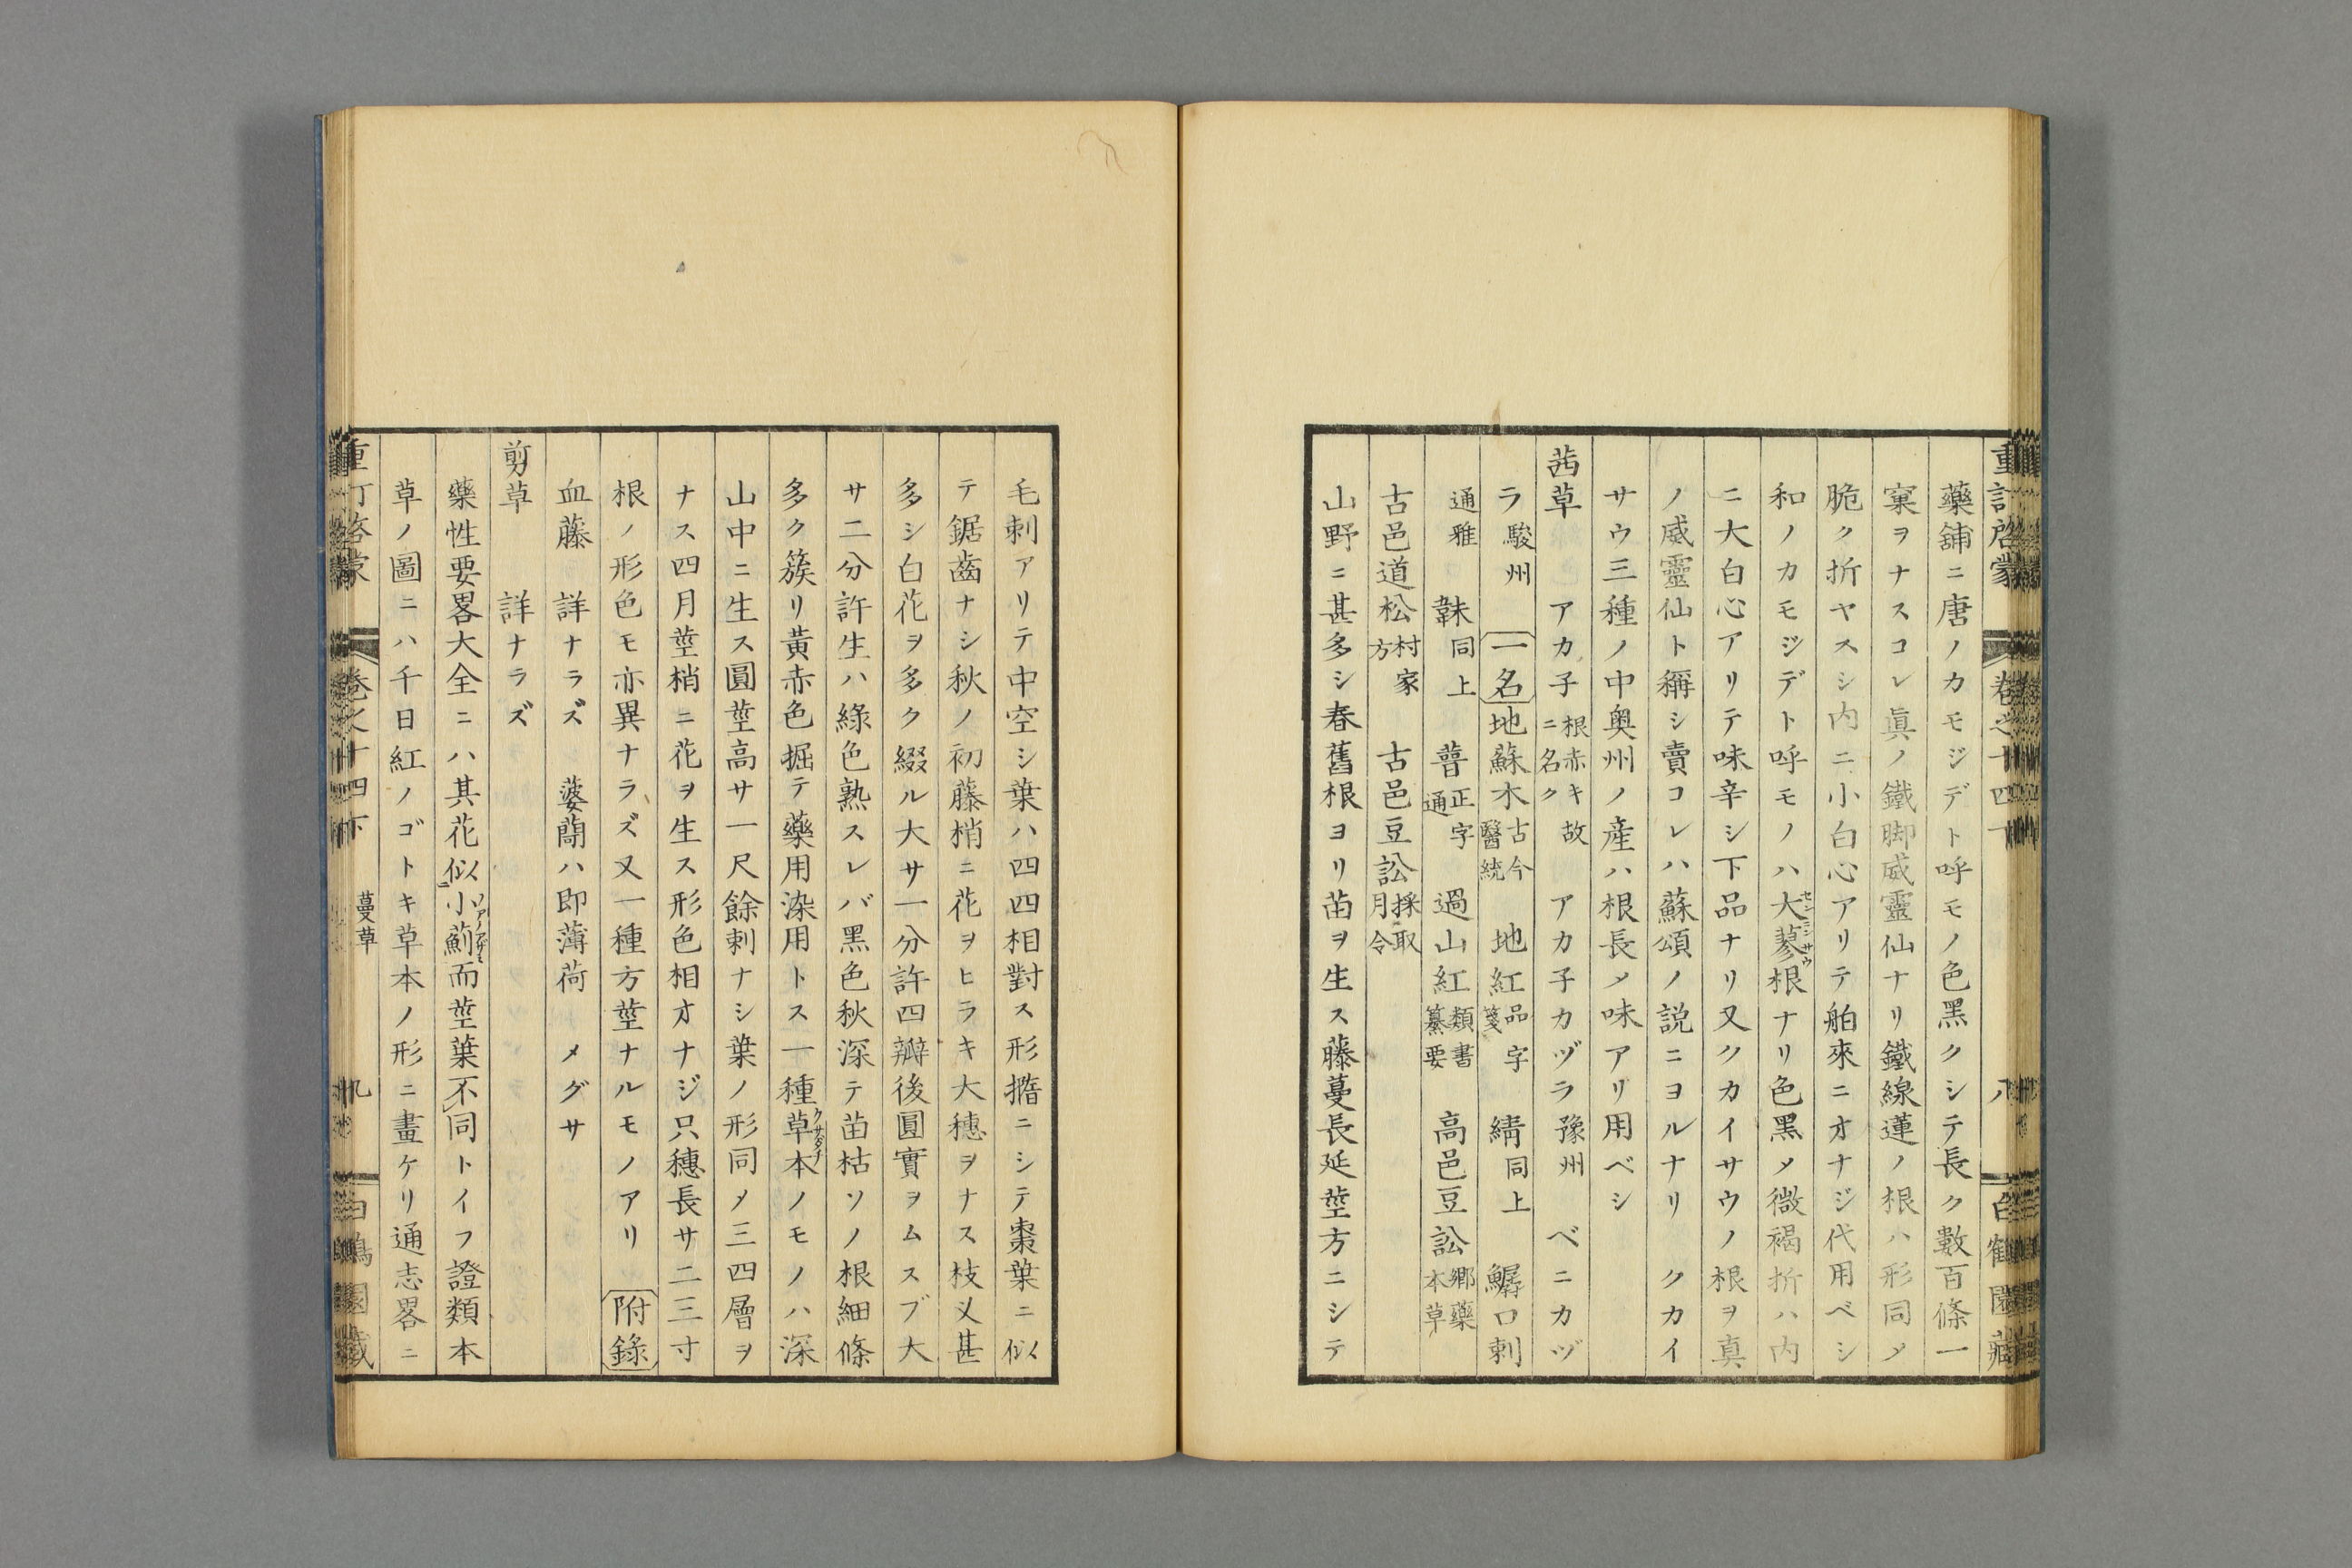 重訂啓蒙 卷之十四下 八 白鶴園藏
藥舖ニ唐ノカモジデト呼モノ色黑クシテ長ク數百條一
窠ヲナスコレ眞ノ鐵脚威靈仙ナリ鐵線蓮ノ根ハ形同〆
脆ク折ヤスシ内ニ小白心アリテ舶來ニオナジ代用ベシ
和ノカモジデト呼モノハ大蓼根ナリ色黑〆微褐折ハ内
ニ大白心アリテ味辛シ下品ナリ又クカイサウノ根ヲ真
ノ威靈仙ト稱シ賣コレハ蘇頌ノ説ニヨルナリ クカイ
サウ三種ノ中奥州ノ産ハ根長〆味アリ用ベシ
茜草 アカ子根赤キ故ニ名ク アカ子カヅラ豫州 ベニカヅ
ラ駿州 一名 地蘇木古今醫統 地紅品字箋 綪同上 鱘口刺
通雅 韎同上 蒨正字通 過山紅類書纂要 高邑豆訟郷藥本草
古邑道松村家方 古邑豆訟採取月令
山野ニ甚多シ春舊根ヨリ苗ヲ生ス藤蔓長延莖方ニシテ
毛刺アリテ中空シ葉ハ四四相對ス形撱ニシテ棗葉ニ似
テ鋸齒ナシ秋ノ初藤梢ニ花ヲヒラキ大穗ヲナス枝乂甚
多シ白花ヲ多ク綴ル大サ一分許四瓣後圓實ヲムスブ大
サ二分許生ハ綠色熟スレバ黑色秋深テ苗枯ソノ根細條
多ク簇リ黄赤色掘テ藥用染用トス一種草本ノモノハ深
山中ニ生ス圓莖高サ一尺餘刺ナシ葉ノ形同〆三四層ヲ
ナス四月莖梢ニ花ヲ生ス形色相オナジ只穗長サ二三寸
根ノ形色モ亦異ナラズ又一種方莖ナルモノアリ 附錄
血藤 詳ナラズ 婆蕳ハ即薄荷 メグサ
剪草 詳ナラズ
藥性要畧大全ニハ其花似小薊而莖葉不同トイフ證類本
草ノ圖ニハ千日紅ノゴトキ草本ノ形ニ畫ケリ通志畧ニ
重訂啓蒙 卷之十四下 蔓草 九 白鶴園藏